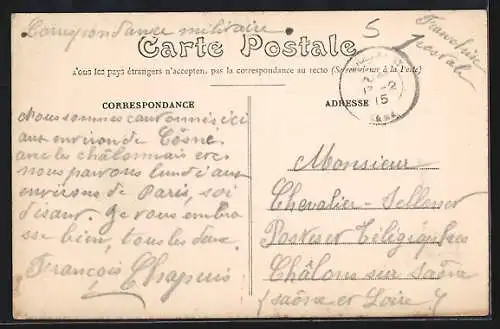 Correspondance militaire
S
Franchise
postale
Carte Postale
Tous les pays étrangers n'acceptent pas la correspondance au recto (Se renseigner à la Poste)
CORRESPONDANCE
ADRESSE
15
Nous sommes cantonnés ici
aux environ de Cosne
avec les châlonnais
nous partons lundi aux
environs de Paris, soi
disant. Je vous embra
sse bien, tous les deux.
François Chapuis
Monsieur
Chevalier - Sellenet
Postes et Télégraphes
Châlons sur Saône
(Saône et Loire)